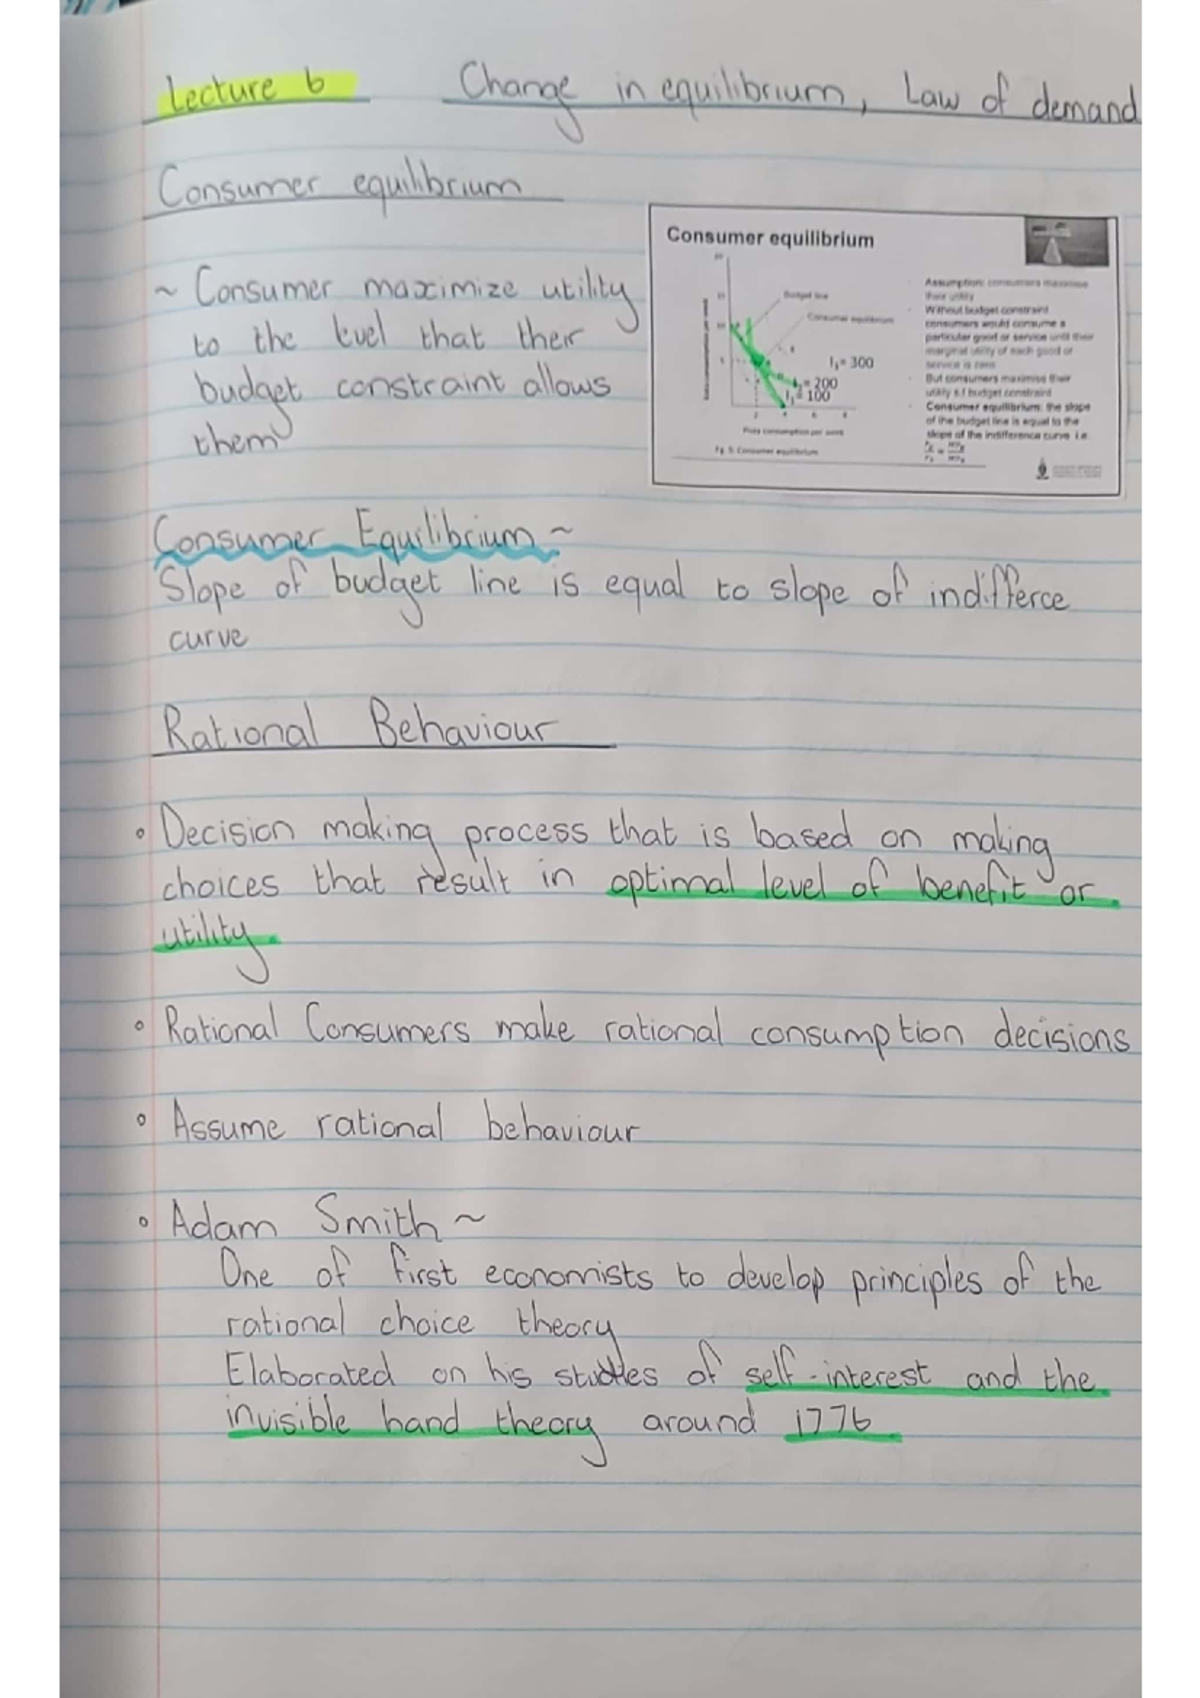 Lecture 6 Change in equilibrium, Law of demand
Consumer equilibrium
~ Consumer maximize utility
to the level that their
budget constraint allows
them
Consumer equilibrium
Budget line
Consumer equilibrium
I₃= 300
= 200
I₁= 100
Pizza consumption per week
Fig. 5: Consumer equilibrium
Assumption: consumers maximise
their utility
Without budget constraint
consumers would consume a
particular good or service until their
marginal utility of each good or
service is zero
But consumers maximise their
utility s.t budget constraint
Consumer equilibrium: the slope
of the budget line is equal to the
slope of the indifference curve i.e.
Consumer Equilibrium ~
Slope of budget line is equal to slope of indifferce
curve
Rational Behaviour
• Decision making process that is based on making
choices that result in optimal level of benefit or
utility.
• Rational Consumers make rational consumption decisions
• Assume rational behaviour
• Adam Smith ~
One of first economists to develop principles of the
rational choice theory
Elaborated on his studies of self-interest and the
invisible hand theory around 1776